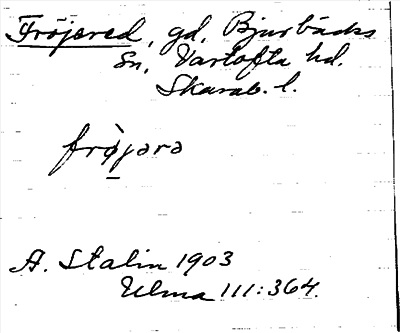 Fröjered, gd, Bjurbäcks
Sn, Vartofta hd.
Skarab. l.
frö̀jərə
A. Stalin 1903
Ulma 111:364.